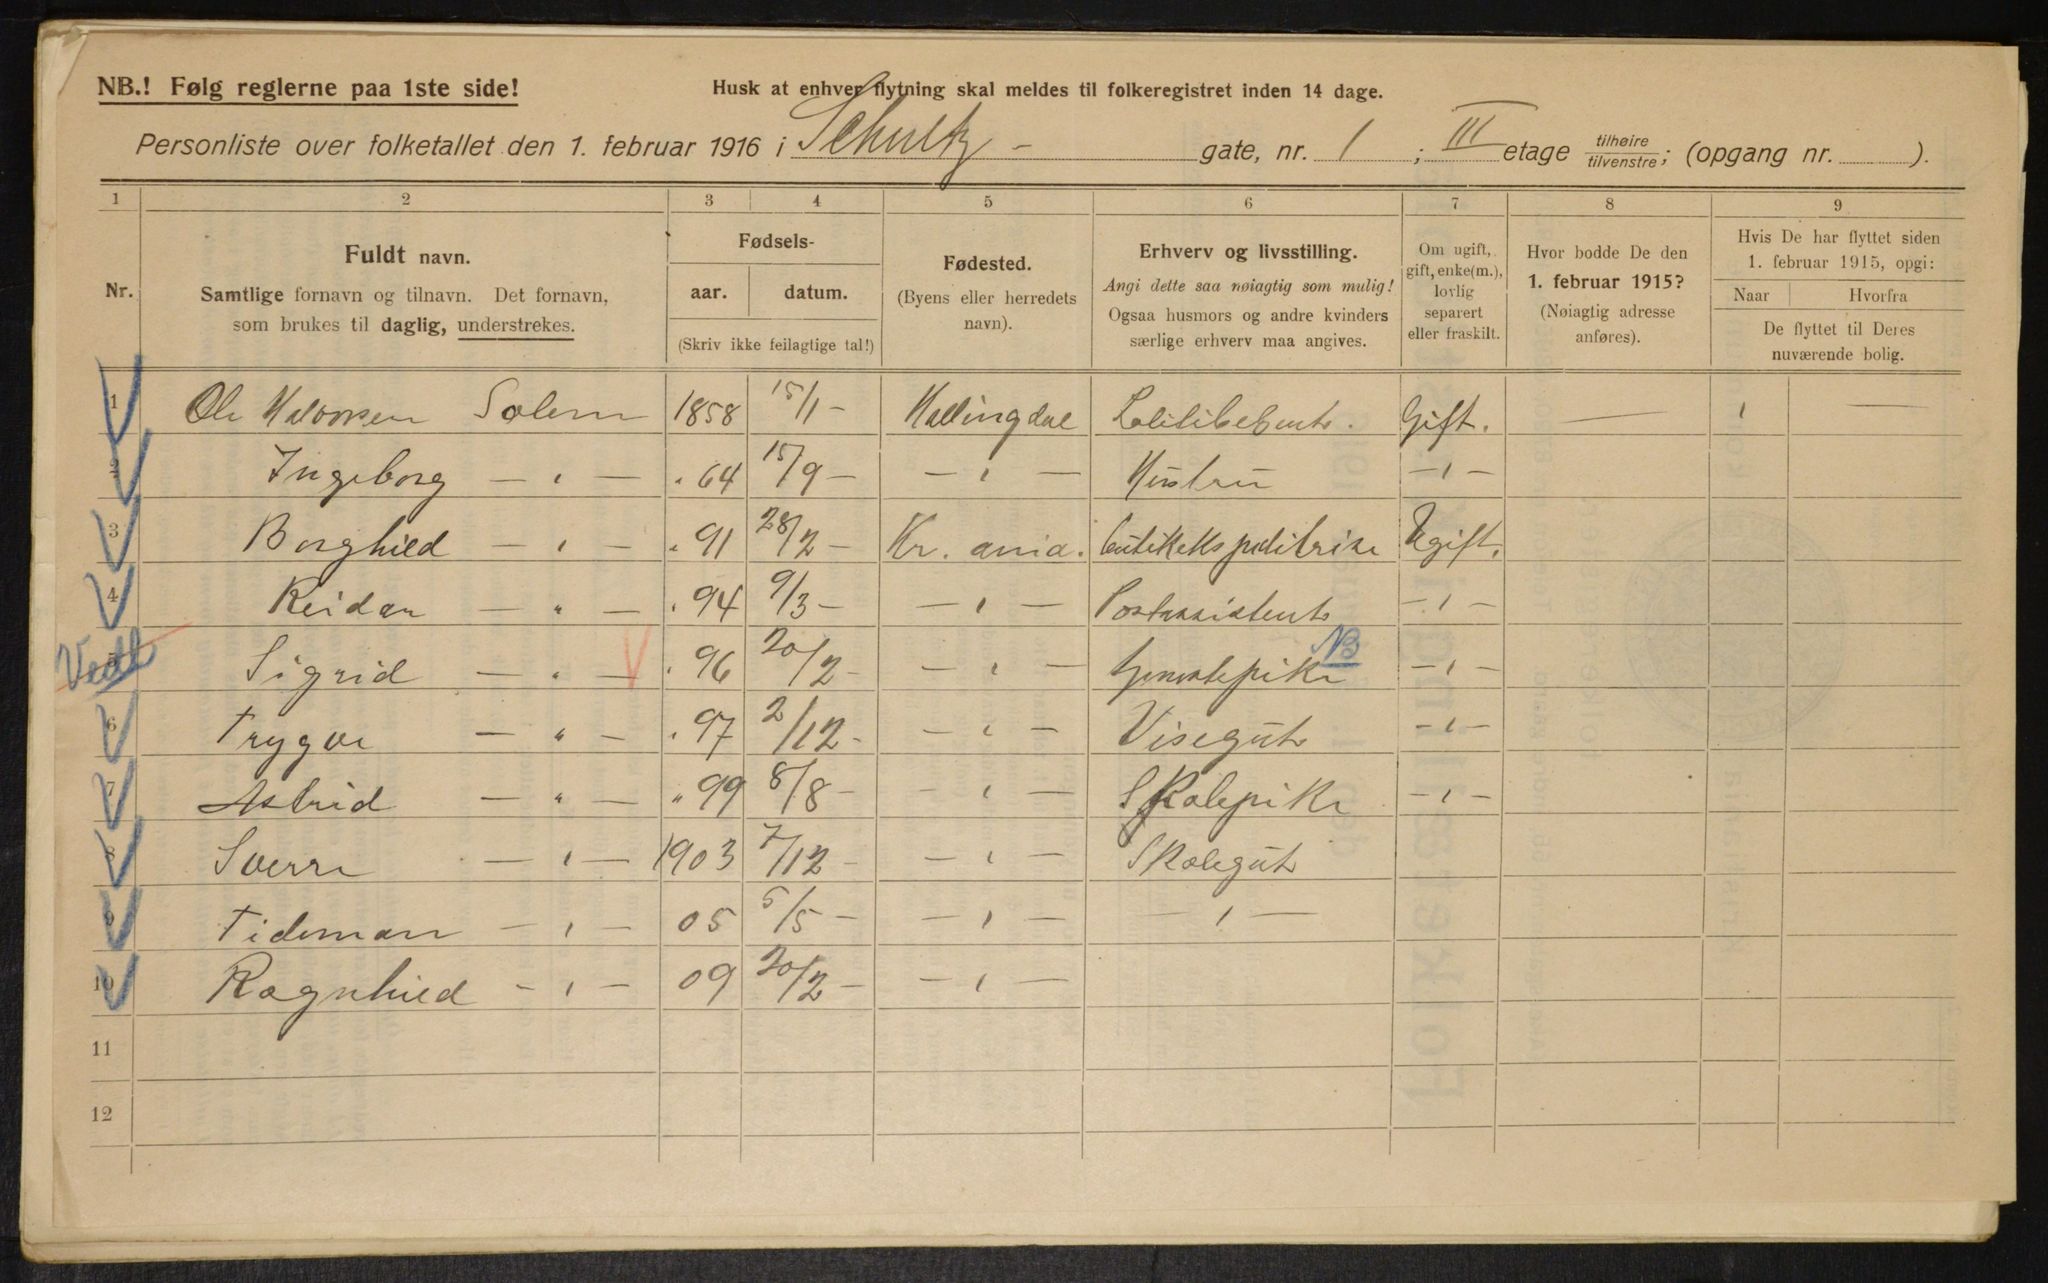 NB.! Følg reglerne paa 1ste side!
Husk at enhver flytning skal meldes til folkeregistret inden 14 dage.
Personliste over folketallet den 1. februar 1916 i Schultz - gate, nr. 1 ; III etage tilhøire/tilvenstre; (opgang nr. ).
1 2 3 4 5 6 7 8 9
Nr.
Fuldt navn.
Samtlige fornavn og tilnavn. Det fornavn,
som brukes til daglig, understrekes.
Fødsels-
aar. datum.
(Skriv ikke feilagtige tal!)
Fødested.
(Byens eller herredets
navn).
Erhverv og livsstilling.
Angi dette saa nøiagtig som mulig!
Ogsaa husmors og andre kvinders
særlige erhverv maa angives.
Om ugift,
gift, enke(m.),
lovlig
separert
eller fraskilt.
Hvor bodde De den
1. februar 1915?
(Nøiagtig adresse
anføres).
Hvis De har flyttet siden
1. februar 1915, opgi:
Naar Hvorfra
De flyttet til Deres
nuværende bolig.
1 Ole Halvorsen Solem 1858 15/1 - Hallingdal Gift. — ı —
2 Ingeborg — ı — " 64 15/9 - — ı — Hustru — ı —
3 Borghild — ı — " 91 28/2 - Kr. ania. butikekspeditrise Ugift.
4 Reidar — " — " 94 9/3 - — ı — Postassistent — ı —
Vedl 5 Sigrid — " — V " 96 20/2 - — ı — NB — ı —
6 Trygve — " — " 97 2/12 - — ı — Visegut — ı —
7 Astrid — " — " 99 8/8 - — ı — Skolepike — ı —
8 Sverre — ı — 1903 7/12 - — ı — Skolegut
9 Tideman — ı — 05 5/5 - — ı — — ı —
10 Ragnhild — ı — 09 20/2 - — ı —
11
12